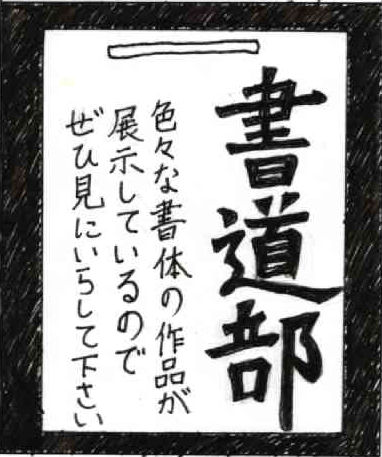 書道部
色々な書体の作品が
展示しているので
ぜひ見にいらして下さい